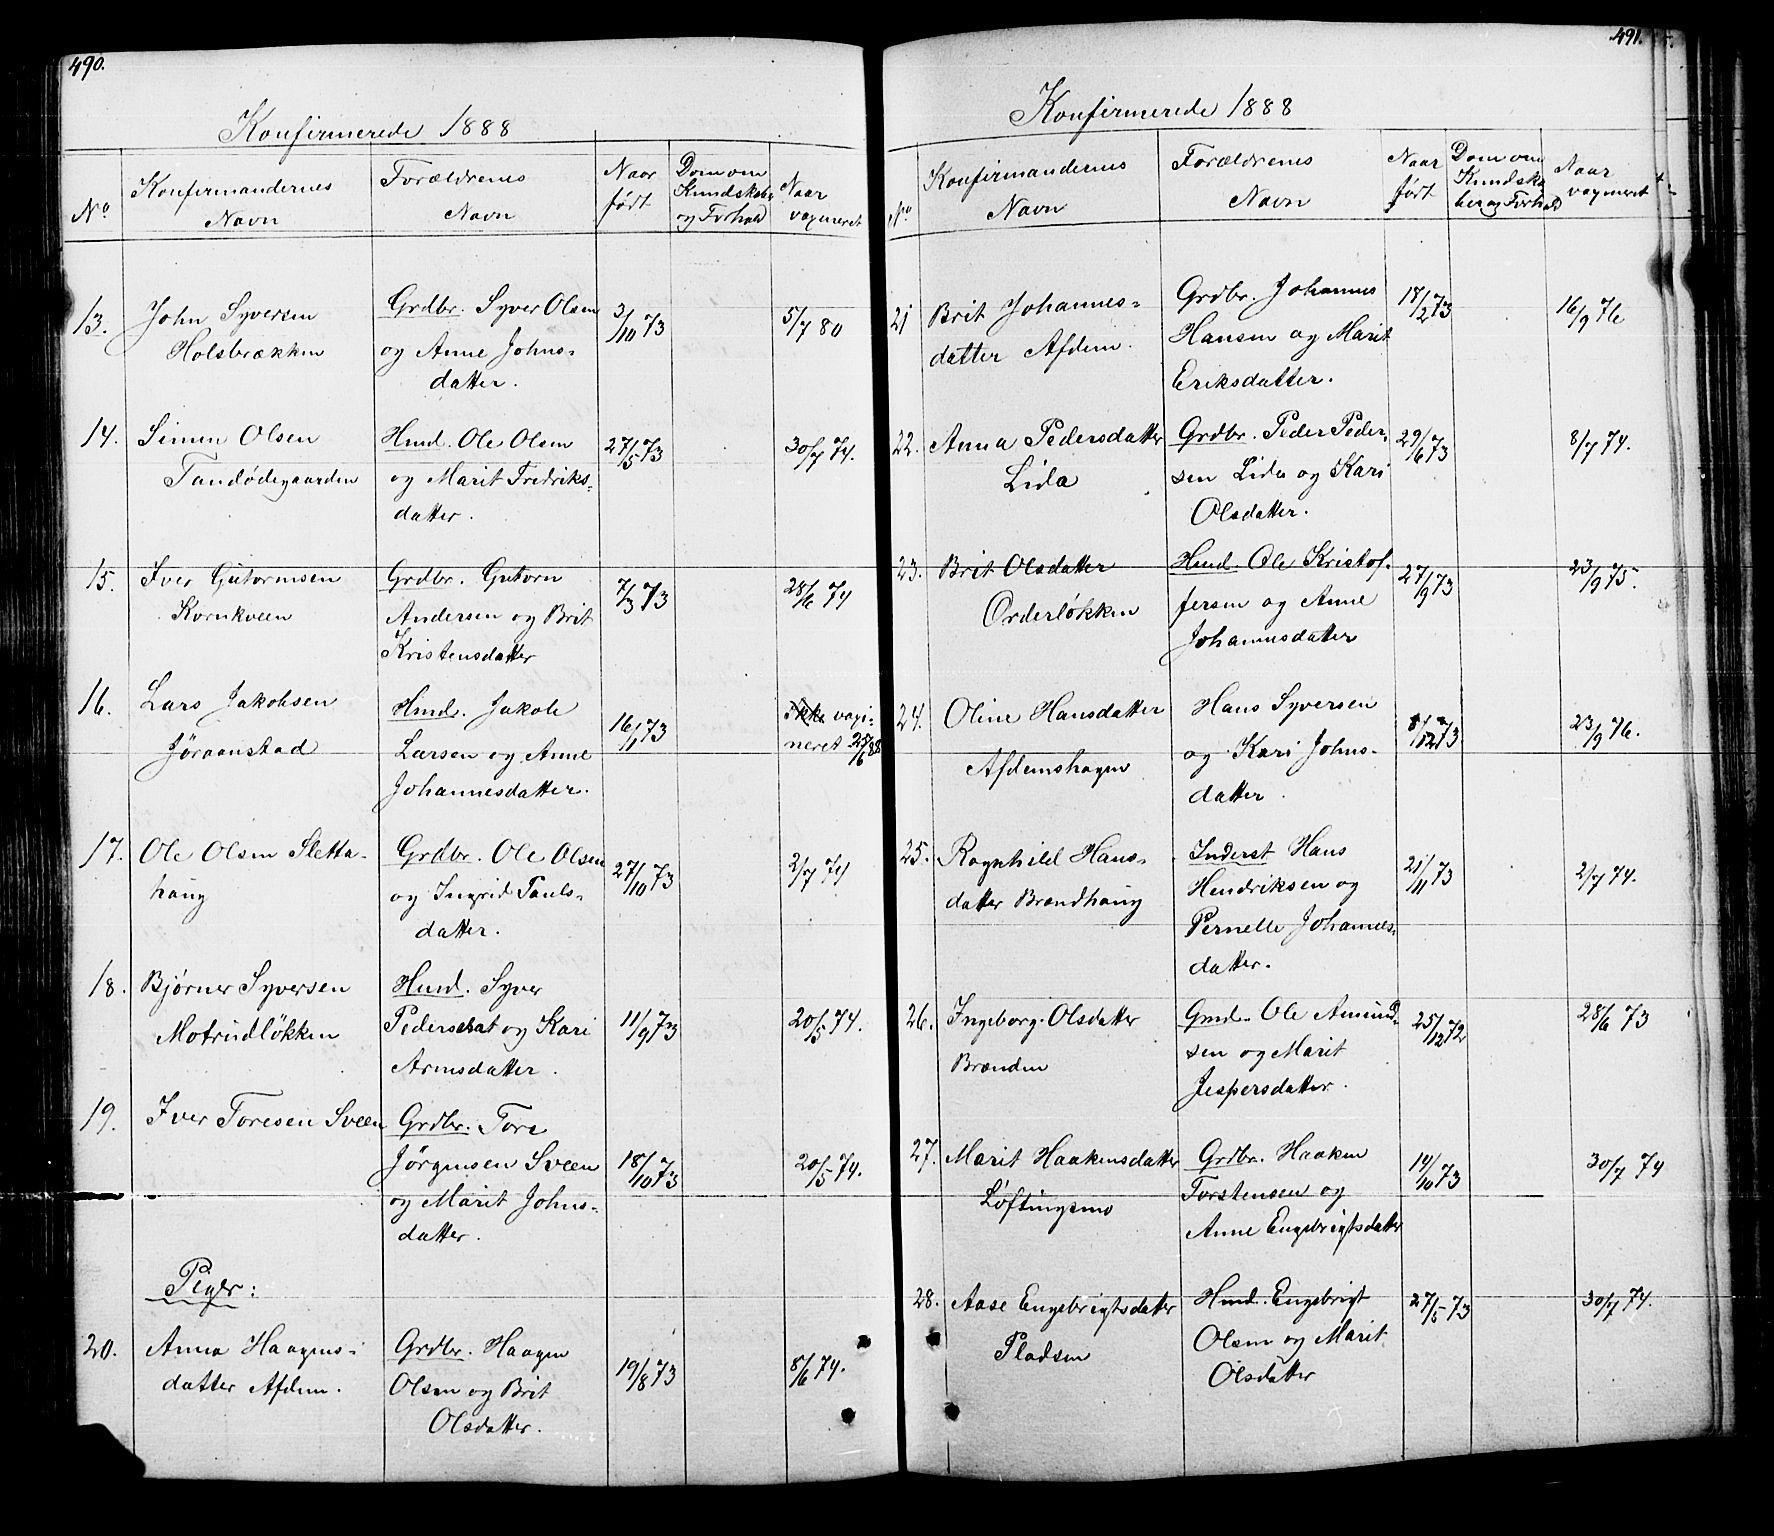 490.
Konfirmerede 1888
No
Konfirmandernes
Navn
Forældrenes
Navn
Naar
født
Dom om
Kundskaber
og Forhold
Naar
vaxineret
13.
John Syversen
Holsbrækken
Grdbr. Syver Olsen
og Anne Johns-
datter.
3/10 73
5/7 80
14.
Simen Olsen
Tandødegaarden
Hmd. Ole Olsen
og Marit Fredriks-
datter.
27/5 73
30/7 74.
15.
Iver Gutormsen
Kornkveen
Grdbr. Gutorm
Andersen og Brit
Kristensdatter
7/3 73
28/6 74
16.
Lars Jakobsen
Jøraanstad
Hmd. Jakob
Larsen og Anne
Johannesdatter.
16/1 73
ikke vaxi-
neret 25/6 88
17.
Ole Olsen Sletta-
haug
Grdbr. Ole Olsen
og Ingrid Pauls-
datter.
27/10 73
2/7 74
18.
Bjørner Syversen
Motrudløkken
Hmd. Syver
og Kari
Arnesdatter.
11/9 73
20/5 74.
19.
Iver Toresen Sveen
Grdbr. Tore
Jørgensen Sveen
og Marit Johns-
datter.
18/10 73
20/5 74.
Piger:
20.
Anna Haagens-
datter Afdem.
Grdbr. Haagen
Olsen og Brit
Olsdatter.
19/8 73
8/6 74.
491.
Konfirmerede 1888
No
Konfirmandernes
Navn
Forældrenes
Navn
Naar
født
Dom om
Kundska
ber og Forhold
Naar
vaxineret
21
Brit Johannes-
datter Afdem.
Grdbr. Johannes
Hansen og Marit
Eriksdatter.
18/2 73
16/9 76
22.
Anna Pedersdatter
Lida
Grdbr. Peder Peder-
sen Lida og Kari
Olsdatter.
29/6 73
8/7 74.
23.
Brit Olsdatter
Orderløkken
Hmd. Ole Kristof-
fersen og Anne
Johannesdatter
27/9 73
23/9 75.
24.
Oline Hansdatter
Afdemshagen
Hans Syversen
og Kari Johns-
datter.
8/12 73
23/9 76.
25.
Ragnhild Hans-
datter Brændhaug
Inderst Hans
Hendriksen og
Pernelle Johannes-
datter.
21/11 73
2/7 74.
26.
Ingeborg Olsdatter
Brænden
Gmd. Ole Amund-
sen og Marit
Jespersdatter.
25/12 72
28/6 73
27.
Marit Haakensdatter
Løftingsmo
Grdbr. Haaken
Torstensen og
Anne Engebrigtsdatter
14/10 73
30/7 74
28.
Aase Engebrigtsdatter
Pladsen
Hmd. Engebrigt
Olsen og Marit
Olsdatter
27/5 73
30/7 74.